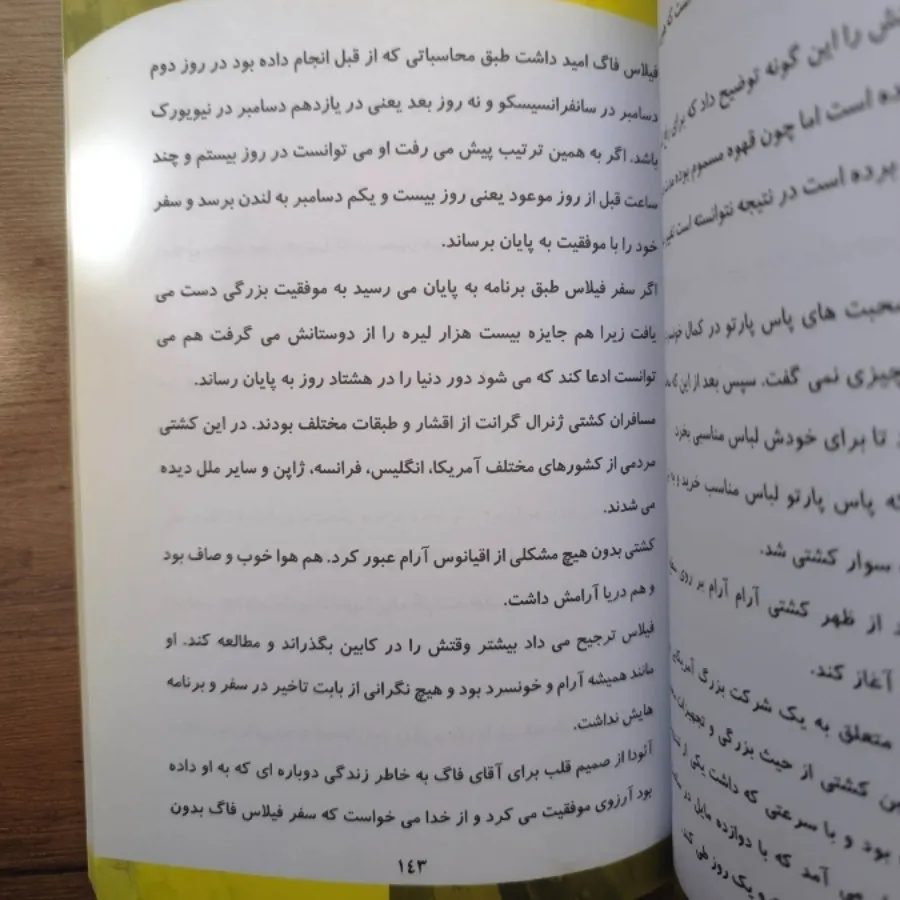 فیلاس فاگ امید داشت طبق محاسباتی که از قبل انجام داده بود در روز دوم
دسامبر در سانفرانسیسکو و نه روز بعد یعنی در یازدهم دسامبر در نیویورک
باشد. اگر به همین ترتیب پیش می رفت او می توانست در روز بیستم و چند
ساعت قبل از روز موعود یعنی روز بیست و یکم دسامبر به لندن برسد و سفر
خود را با موفقیت به پایان برساند.
اگر سفر فیلاس طبق برنامه به پایان می رسید به موفقیت بزرگی دست می
یافت زیرا هم جایزه بیست هزار لیره را از دوستانش می گرفت هم می
توانست ادعا کند که می شود دور دنیا را در هشتاد روز به پایان رساند.
مسافران کشتی ژنرال گرانت از اقشار و طبقات مختلف بودند. در این کشتی
مردمی از کشورهای مختلف آمریکا، انگلیس، فرانسه، ژاپن و سایر ملل دیده
می شدند.
کشتی بدون هیچ مشکلی از اقیانوس آرام عبور کرد. هم هوا خوب و صاف بود
و هم دریا آرامش داشت.
فیلاس ترجیح می داد بیشتر وقتش را در کابین بگذراند و مطالعه کند. او
مانند همیشه آرام و خونسرد بود و هیچ نگرانی از بابت تاخیر در سفر و برنامه
هایش نداشت.
آئودا از صمیم قلب برای آقای فاگ به خاطر زندگی دوباره ای که به او داده
بود آرزوی موفقیت می کرد و از خدا می خواست که سفر فیلاس فاگ بدون
۱۴۳
را این گونه توضیح داد که برای
است اما چون قهوه مسموم بوده
برده است در نتیجه نتوانسته است
صحبت های پاس پارتو در کمال
چیزی نمی گفت. سپس بعد از این که
تا برای خودش لباس مناسبی بخرد
که پاس پارتو لباس مناسب خرید و
سوار کشتی شد.
از ظهر کشتی آرام آرام بر روی
آغاز کند.
متعلق به یک شرکت بزرگ آمریکایی
کشتی از حیث بزرگی و تجهیزات
بود و با سرعتی که داشت یکی از
می آمد که با دوازده مایل در
و یک روز طی کند.